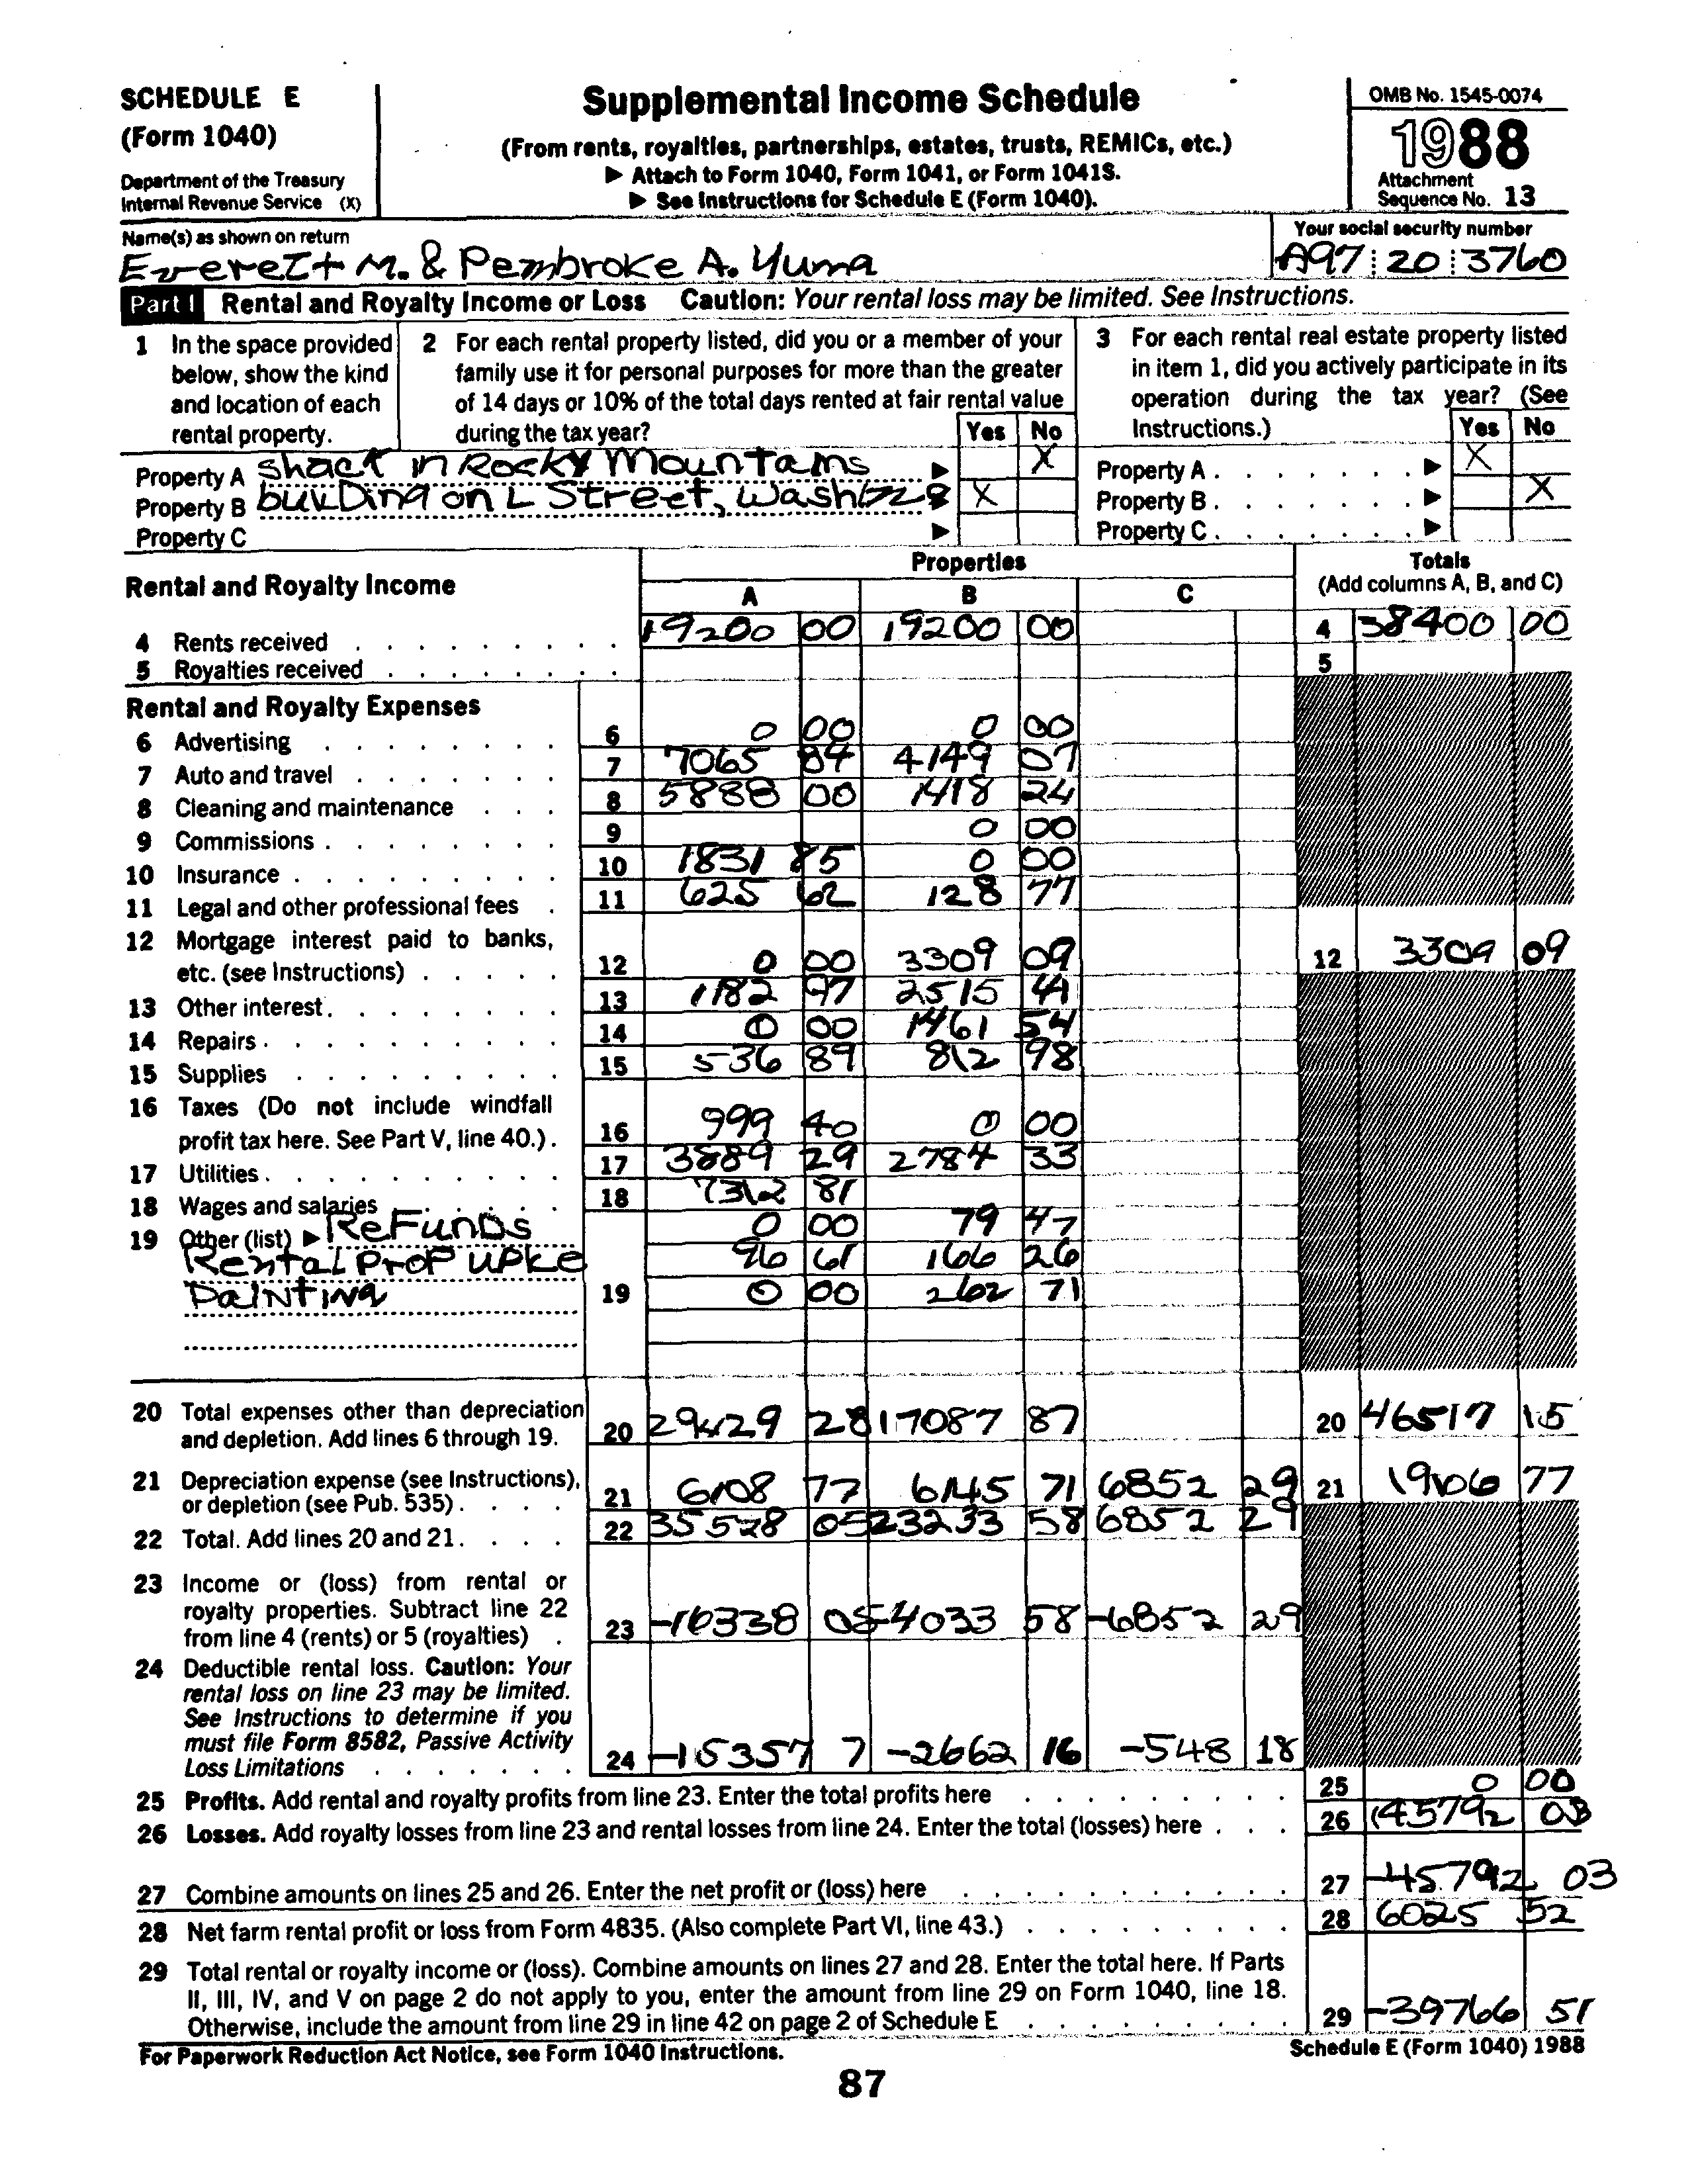 SCHEDULE E
(Form 1040)
Department of the Treasury
Internal Revenue Service (X)
Supplemental Income Schedule
(From rents, royalties, partnerships, estates, trusts, REMICs, etc.)
▶ Attach to Form 1040, Form 1041, or Form 1041S.
▶ See Instructions for Schedule E (Form 1040).
OMB No. 1545-0074
1988
Attachment
Sequence No. 13
Name(s) as shown on return
Everett M. & Pembroke A. Yuma
Your social security number
A97 20 3760
Part I Rental and Royalty Income or Loss Caution: Your rental loss may be limited. See Instructions.
1 In the space provided
below, show the kind
and location of each
rental property.
2 For each rental property listed, did you or a member of your
family use it for personal purposes for more than the greater
of 14 days or 10% of the total days rented at fair rental value
during the tax year? Yes No
3 For each rental real estate property listed
in item 1, did you actively participate in its
operation during the tax year? (See
Instructions.) Yes No
Property A shack in Rocky Mountains ▶ X Property A ▶ X
Property B building on L Street, ▶ X Property B ▶ X
Property C ▶ Property C ▶
Rental and Royalty Income
Properties
A B C
Totals
(Add columns A, B, and C)
4 Rents received 19200 00 19200 00 4 38400 00
5 Royalties received 5
Rental and Royalty Expenses
6 Advertising 6 0 00 0 00
7 Auto and travel 7 7065 84 4149 07
8 Cleaning and maintenance 8 5888 00 1418 24
9 Commissions 9 0 00
10 Insurance 10 1831 85 0 00
11 Legal and other professional fees 11 625 62 128 77
12 Mortgage interest paid to banks,
etc. (see Instructions) 12 0 00 3309 09 12 3309 09
13 Other interest 13 1182 97 2515 41
14 Repairs 14 0 00 1461 54
15 Supplies 15 536 89 812 98
16 Taxes (Do not include windfall
profit tax here. See Part V, line 40.) 16 999 40 0 00
17 Utilities 17 3889 29 2784 33
18 Wages and salaries 18 7312 81
19 Other (list) ▶ Refunds 0 00 79 47
Rental Prop Upke 96 61 166 26
Painting 19 0 00 262 71
20 Total expenses other than depreciation
and depletion. Add lines 6 through 19. 20 29429 28 17087 87 20 46517 15
21 Depreciation expense (see Instructions),
or depletion (see Pub. 535) 21 6108 77 6145 71 6852 29 21 19106 77
22 Total. Add lines 20 and 21. 22 35538 05 23233 58 6852 29
23 Income or (loss) from rental or
royalty properties. Subtract line 22
from line 4 (rents) or 5 (royalties) 23 -16338 05 -4033 58 -6852 29
24 Deductible rental loss. Caution: Your
rental loss on line 23 may be limited.
See Instructions to determine if you
must file Form 8582, Passive Activity
Loss Limitations 24 -15357 7 -2662 16 -548 18
25 Profits. Add rental and royalty profits from line 23. Enter the total profits here 25 0 00
26 Losses. Add royalty losses from line 23 and rental losses from line 24. Enter the total (losses) here 26 (45792 03
27 Combine amounts on lines 25 and 26. Enter the net profit or (loss) here 27 -45792 03
28 Net farm rental profit or loss from Form 4835. (Also complete Part VI, line 43.) 28 6025 52
29 Total rental or royalty income or (loss). Combine amounts on lines 27 and 28. Enter the total here. If Parts
II, III, IV, and V on page 2 do not apply to you, enter the amount from line 29 on Form 1040, line 18.
Otherwise, include the amount from line 29 in line 42 on page 2 of Schedule E 29 -39766 51
For Paperwork Reduction Act Notice, see Form 1040 Instructions.
Schedule E (Form 1040) 1988
87